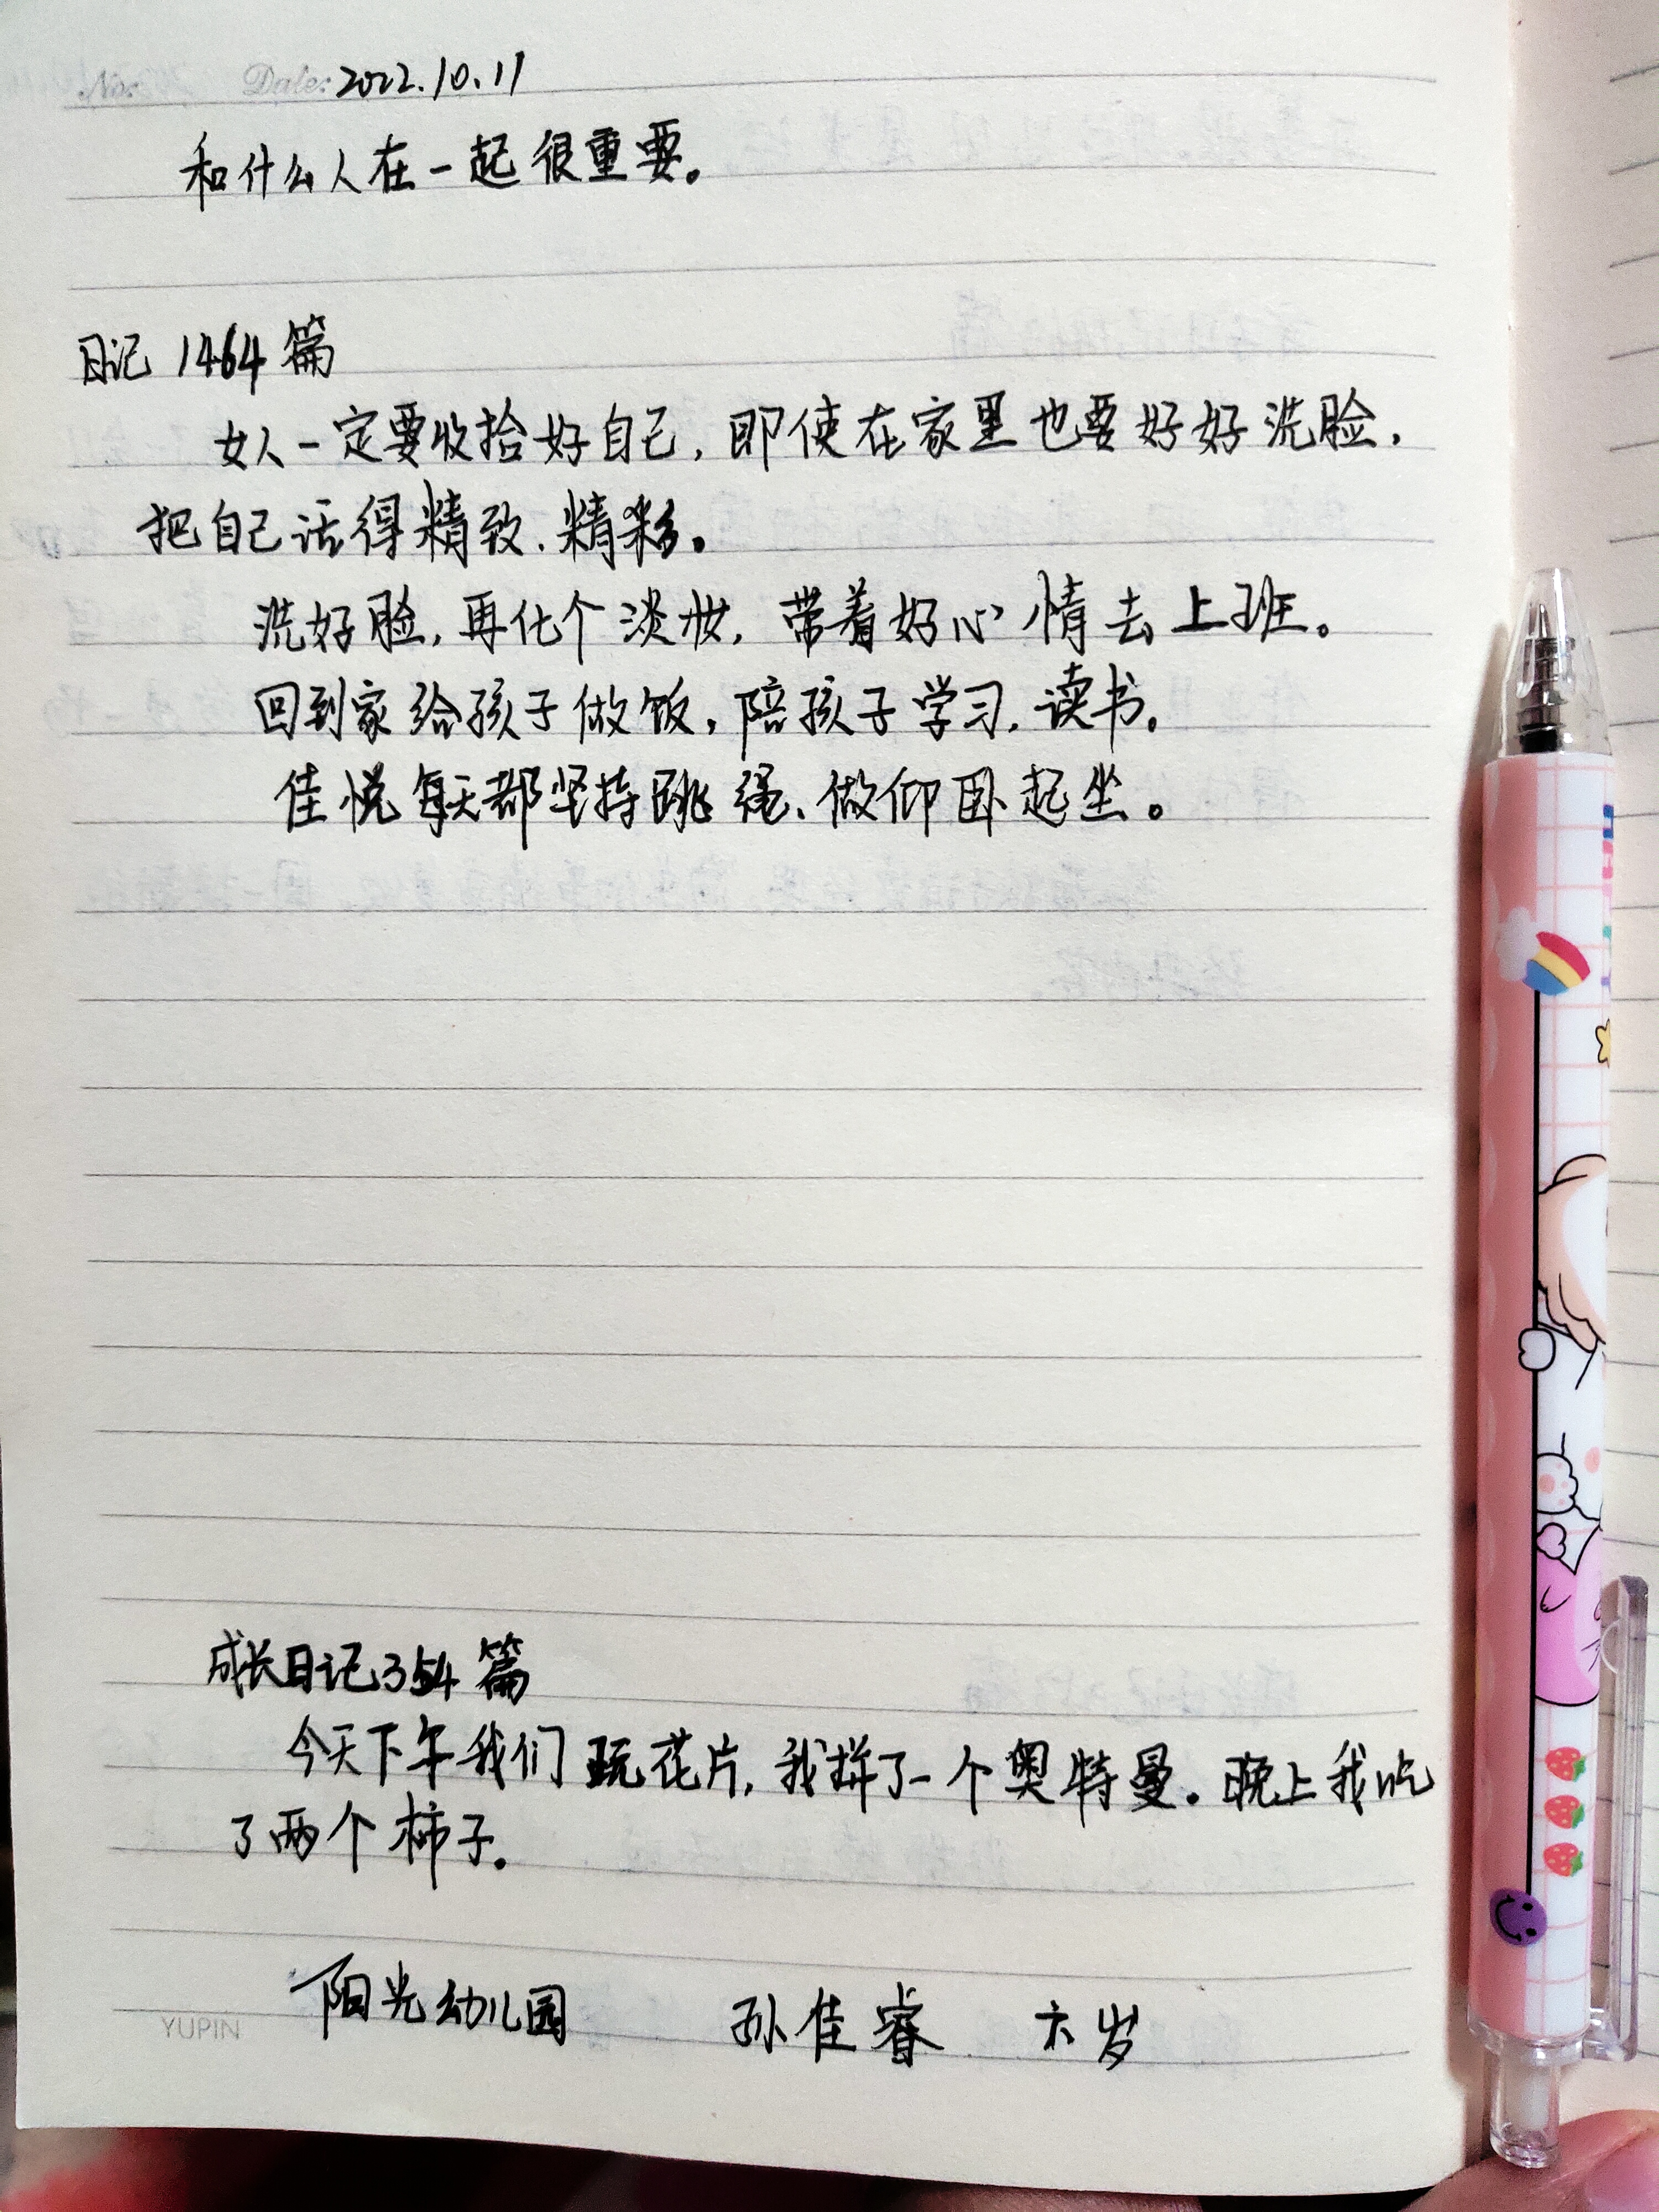 No: Date: 2022.10.11
和什么人在一起很重要。
日记 1464 篇
女人一定要收拾好自己，即使在家里也要好好洗脸，
把自己活得精致、精彩。
洗好脸，再化个淡妆，带着好心情去上班。
回到家给孩子做饭，陪孩子学习、读书。
佳悦每天都坚持跳绳、做仰卧起坐。
成长日记354篇
今天下午我们玩花片，我拼了一个奥特曼。晚上我吃
了两个柿子。
阳光幼儿园 孙佳睿 六岁
YUPIN